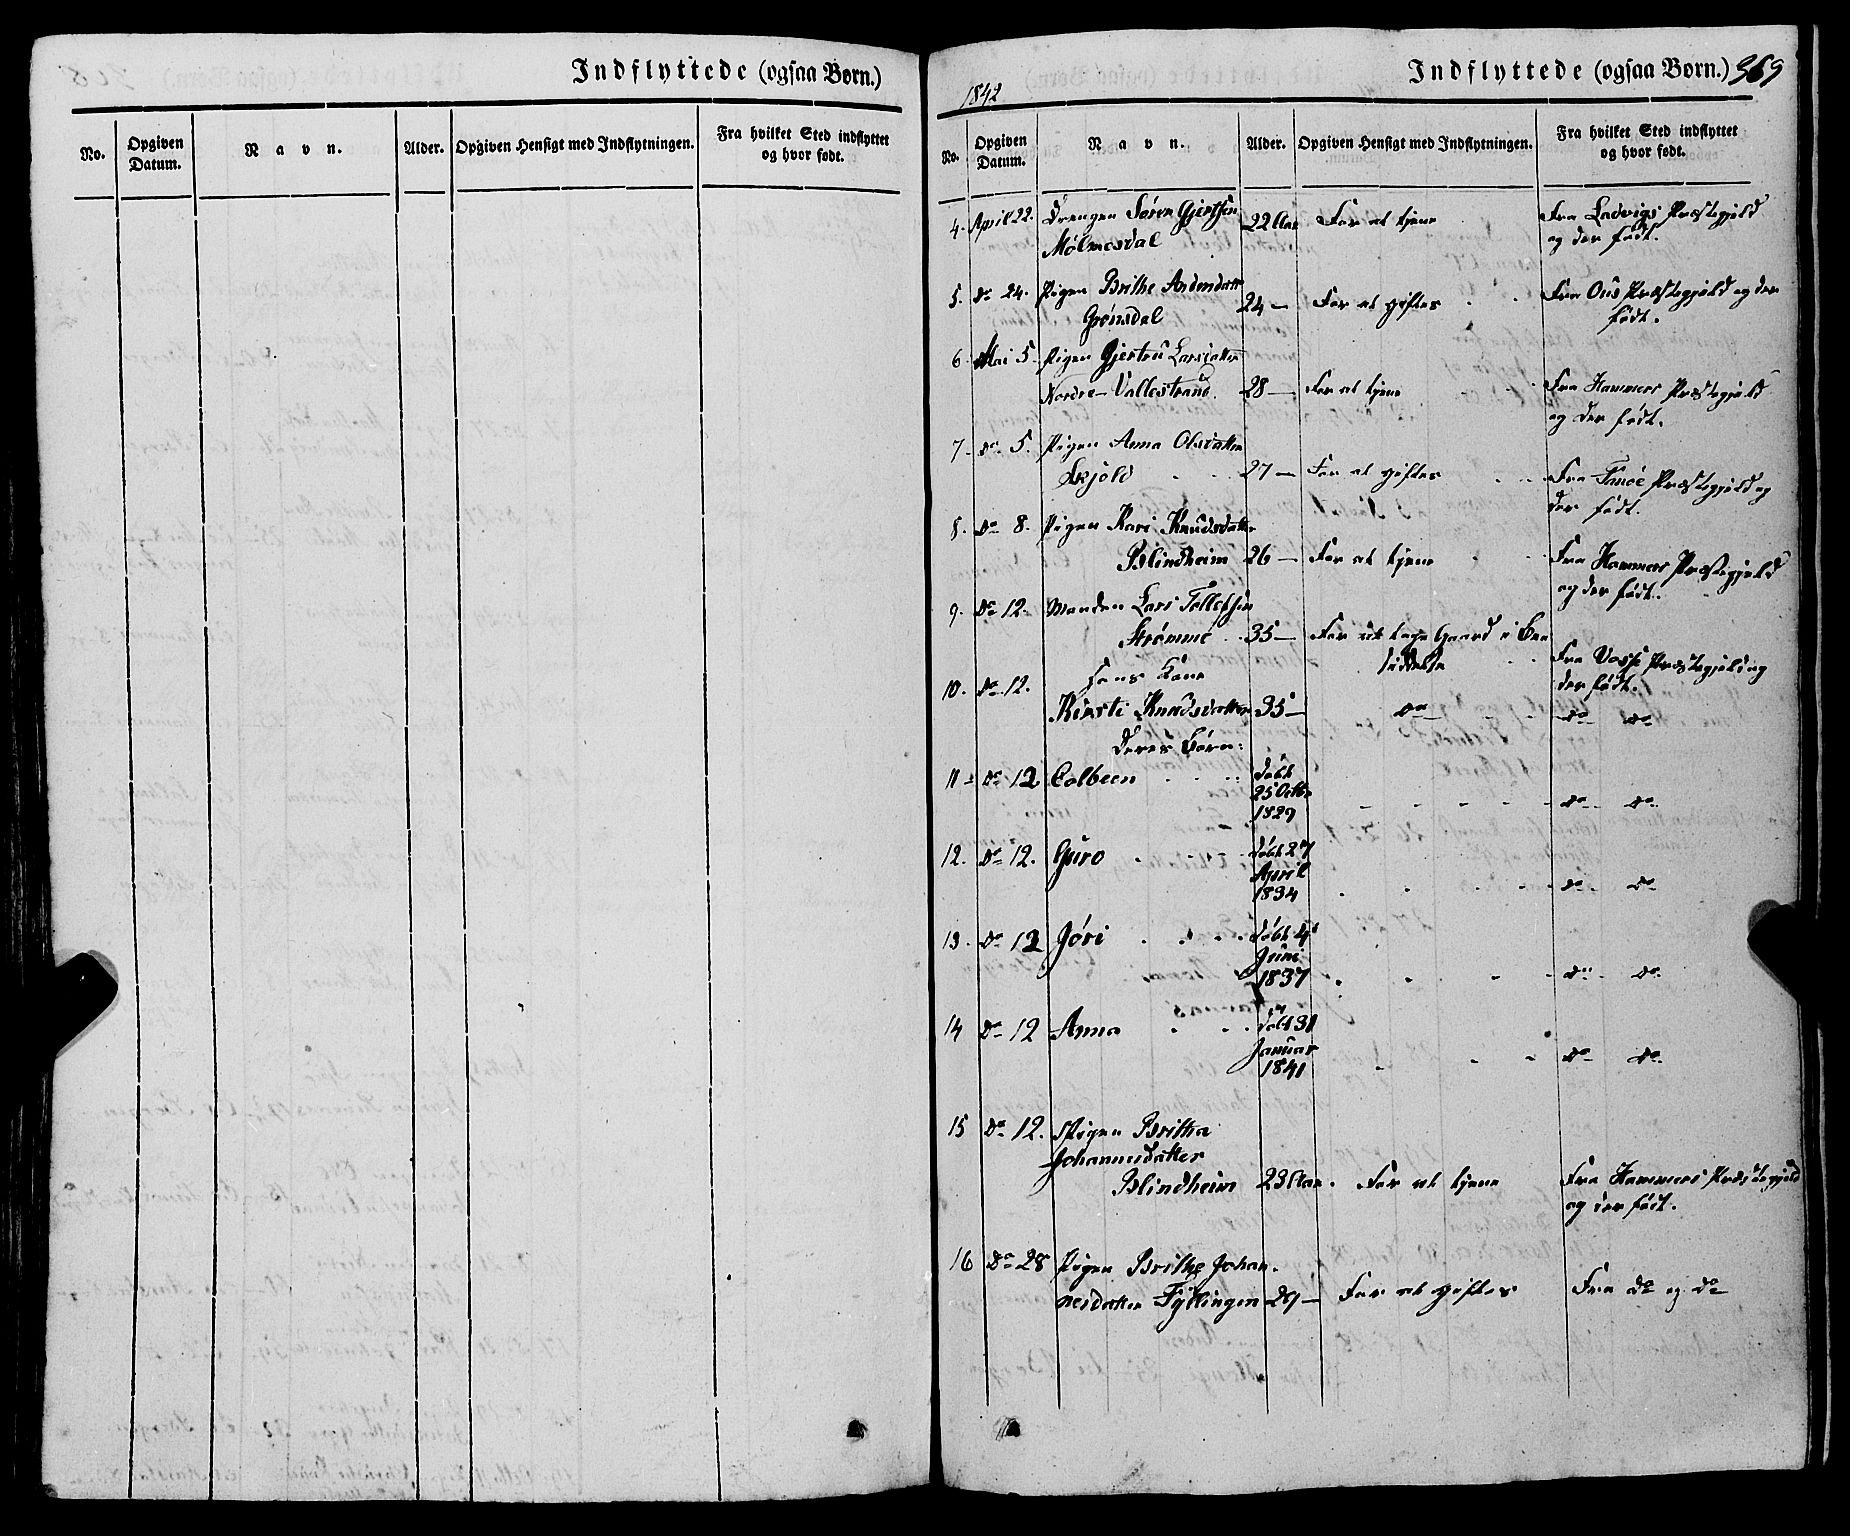 Indflyttede (ogsaa Børn.)
No.
Opgiven Datum.
Navn.
Alder.
Opgiven Hensigt med Indflytningen.
Fra hvilket Sted indflyttet
og hvor født.
Indflyttede (ogsaa Børn.) 369
1842
No.
Opgiven Datum.
Navn.
Alder.
Opgiven Hensigt med Indflytningen.
Fra hvilket Sted indflyttet
og hvor født.
4. April 22. Drengen Søren Gjertsen
Mølmesdal 22 Aar For at tjene Fra Ladvigs Præstegjeld
og der født.
5. Do 24. Pigen Brithe Andersdatter
Grønsdal 24 — For at giftes Fra Ous Præstegjeld og der
født.
6. Mai 5. Pigen Gjertru Larsdatter
Nordre-Vallestrand 28 — For at tjene Fra Hammers Præstegjeld
og der født.
7. Do 5. Pigen Anna Olsdatter
Skjold 27 — For at giftes Fra Fanøe Præstegjeld og
der født.
8. Do 8. Pigen Kari Knudsdatter
Blindheim 26 — For at tjene Fra Hammers Præstegjeld
og der født.
9. Do 12. Manden Lars Tollefsen
Strømme 35 — For at tage Gaard i Be
siddelse Fra Vosse Præstegjeld og
der født.
10. Do 12. Hans Kone
Kirsti Knudsdatter 35 — Do Do Do
Deres Børn:
11 Do 12 Colbeen døbt
25 Octbr
1829 Do Do
12. Do 12. Guro døbt 27
April
1834 Do Do
13. Do 12 Jøri døbt 4
Juni
1837 Do Do
14 Do 12 Anna døbt 31
Januar
1841 Do Do
15 Do 12. Pigen Britha
Johannesdatter
Blindheim 23 Aar. For at tjene Fra Hammers Præstegjeld
og der født.
16 Do 28 Pigen Brithe Johan-
nesdatter Fyllingen 29 — For at giftes Fra Do og Do